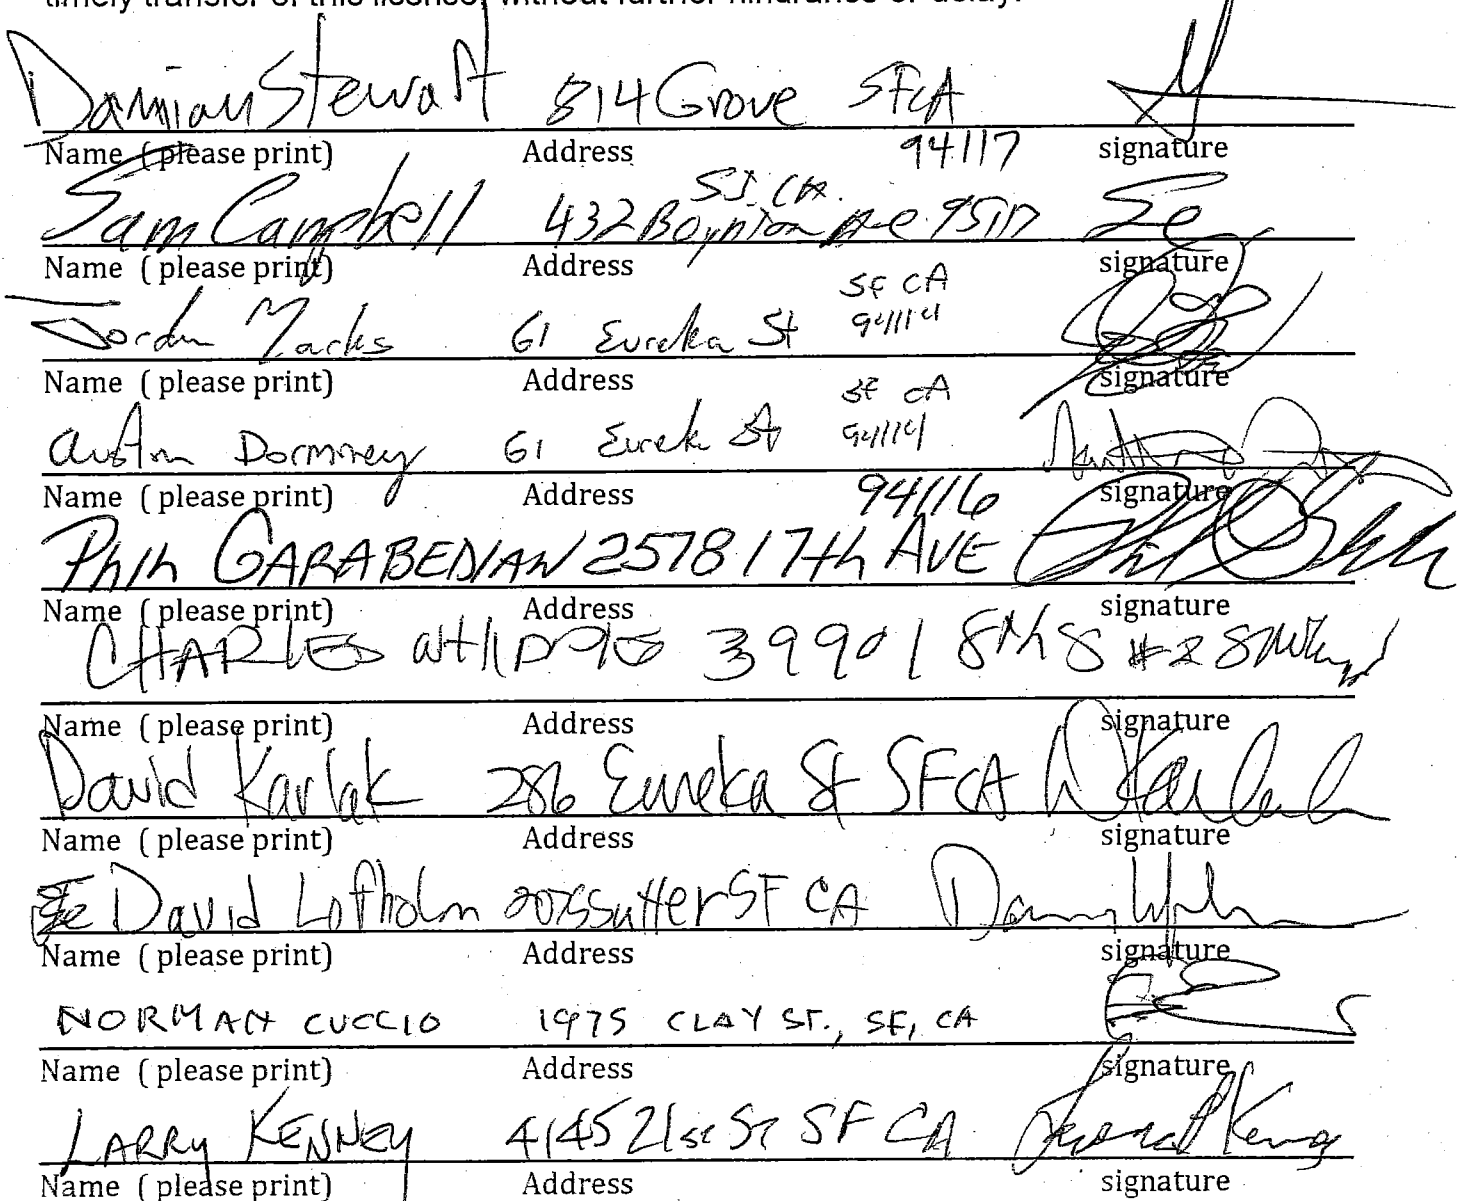 timely transfer of this license, without further hindrance or delay.
Damian Stewart 814 Grove SF CA
Name (please print) Address 94117 signature
SJ. CA.
Sam Campbell 432 Boynton Ave 95117
Name ( please print) Address signature
SF CA
Jordan Marks 61 Eureka St 94114
Name ( please print) Address signature
SF CA
Austin Dormney 61 Eureka St 94114
Name ( please print) Address 94116 signature
Phil GARABEDIAN 2578 17th AVE
Name ( please print) Address signature
CHARLES 3990 18th S #2
Name ( please print) Address signature
David Karlak 286 Eureka St SF CA D Karlak
Name ( please print) Address signature
David Lofholm 2075 Sutter SF CA
Name ( please print) Address signature
NORMAN CUCCIO 1975 CLAY ST., SF, CA
Name ( please print) Address signature
LARRY KENNEY 4145 21st St SF CA
Name ( please print) Address signature